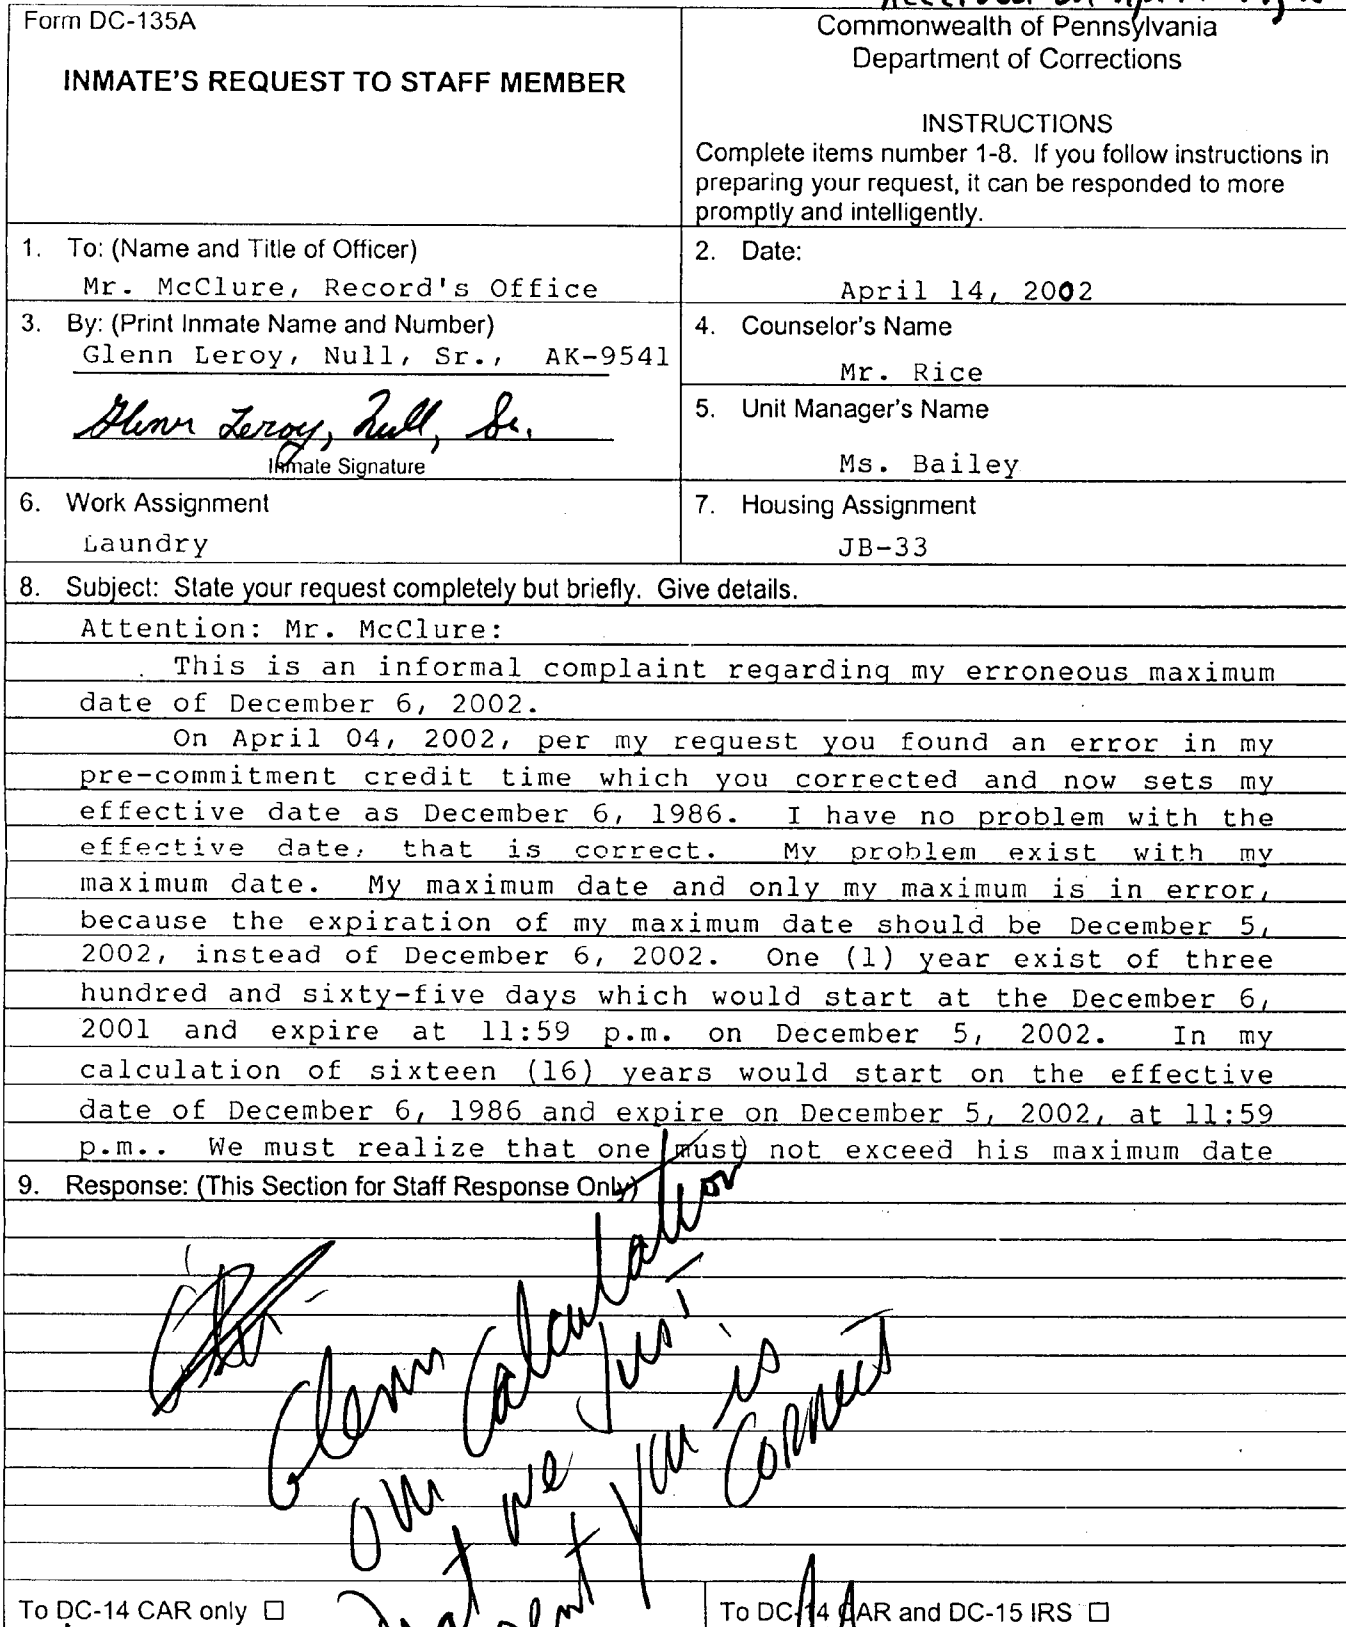 Received on April
Form DC-135A
INMATE'S REQUEST TO STAFF MEMBER
Commonwealth of Pennsylvania
Department of Corrections
INSTRUCTIONS
Complete items number 1-8. If you follow instructions in
preparing your request, it can be responded to more
promptly and intelligently.
1. To: (Name and Title of Officer)
Mr. McClure, Record's Office
2. Date:
April 14, 2002
3. By: (Print Inmate Name and Number)
Glenn Leroy, Null, Sr., AK-9541
Glenn Leroy, Null, Sr.
Inmate Signature
4. Counselor's Name
Mr. Rice
5. Unit Manager's Name
Ms. Bailey
6. Work Assignment
Laundry
7. Housing Assignment
JB-33
8. Subject: State your request completely but briefly. Give details.
Attention: Mr. McClure:
This is an informal complaint regarding my erroneous maximum
date of December 6, 2002.
On April 04, 2002, per my request you found an error in my
pre-commitment credit time which you corrected and now sets my
effective date as December 6, 1986. I have no problem with the
effective date, that is correct. My problem exist with my
maximum date. My maximum date and only my maximum is in error,
because the expiration of my maximum date should be December 5,
2002, instead of December 6, 2002. One (1) year exist of three
hundred and sixty-five days which would start at the December 6,
2001 and expire at 11:59 p.m. on December 5, 2002. In my
calculation of sixteen (16) years would start on the effective
date of December 6, 1986 and expire on December 5, 2002, at 11:59
p.m.. We must realize that one must not exceed his maximum date
9. Response: (This Section for Staff Response Only)
Glenn
our Calculation
that we just
sent you is
Correct
To DC-14 CAR only ☐
To DC-14 CAR and DC-15 IRS ☐